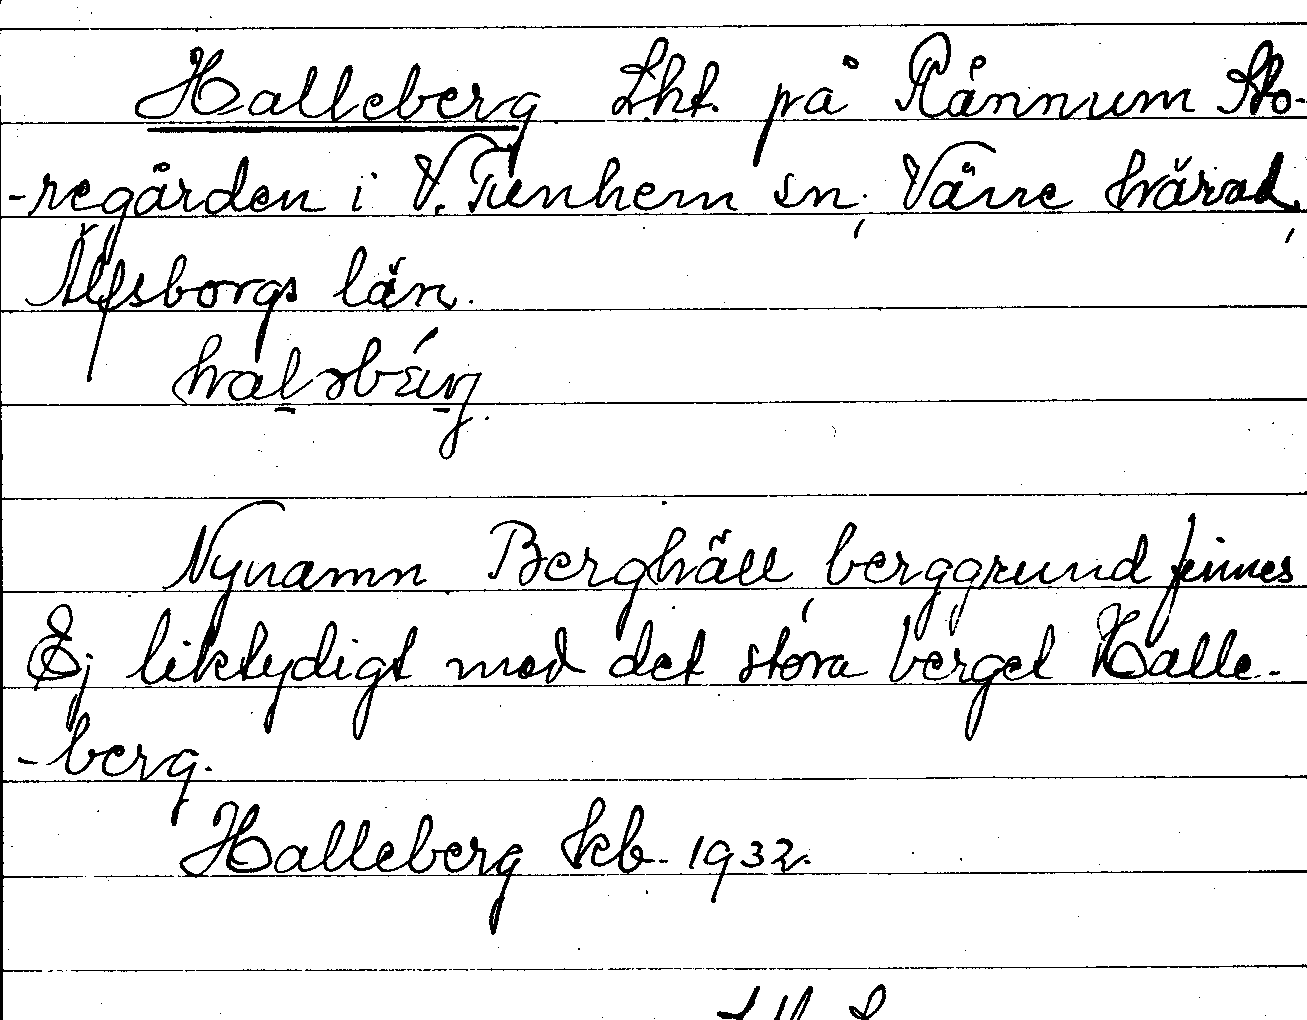 Halleberg Lht. på Rånnum Sto-
-regården i V. Tunhem sn, Väne härad,
Älfsborgs län.
Nynamn Berghäll, berggrund finnes
Ej liktydigt med det stora berget Halle-
-berg.
Halleberg kb. 1932.